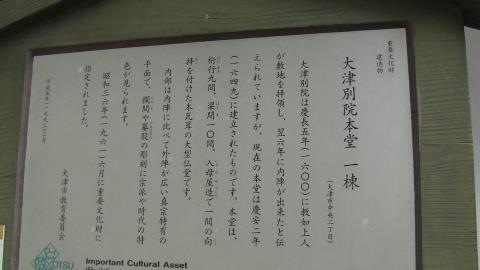 重要文化財
建造物
大津別院本堂 一棟
(大津市中央二丁目)
大津別院は慶長五年(一六〇〇)に教如上人
が敷地を拝領し、翌六年に内陣が出来たと伝
えられていますが、現在の本堂は慶安二年
(一六四九)に建立されたものです。本堂は、
桁行九間、梁間一〇間、入母屋造で一間の向
拝を付けた本瓦葺の大型仏堂です。
内部は内陣に比べて外陣が広い真宗特有の
平面で、欄間や蟇股の彫刻に宗派や時代の特
色が見られます。
昭和三六年(一九六一)六月に重要文化財に
指定されました。
大津市教育委員会
OTSU
Important Cultural Asset